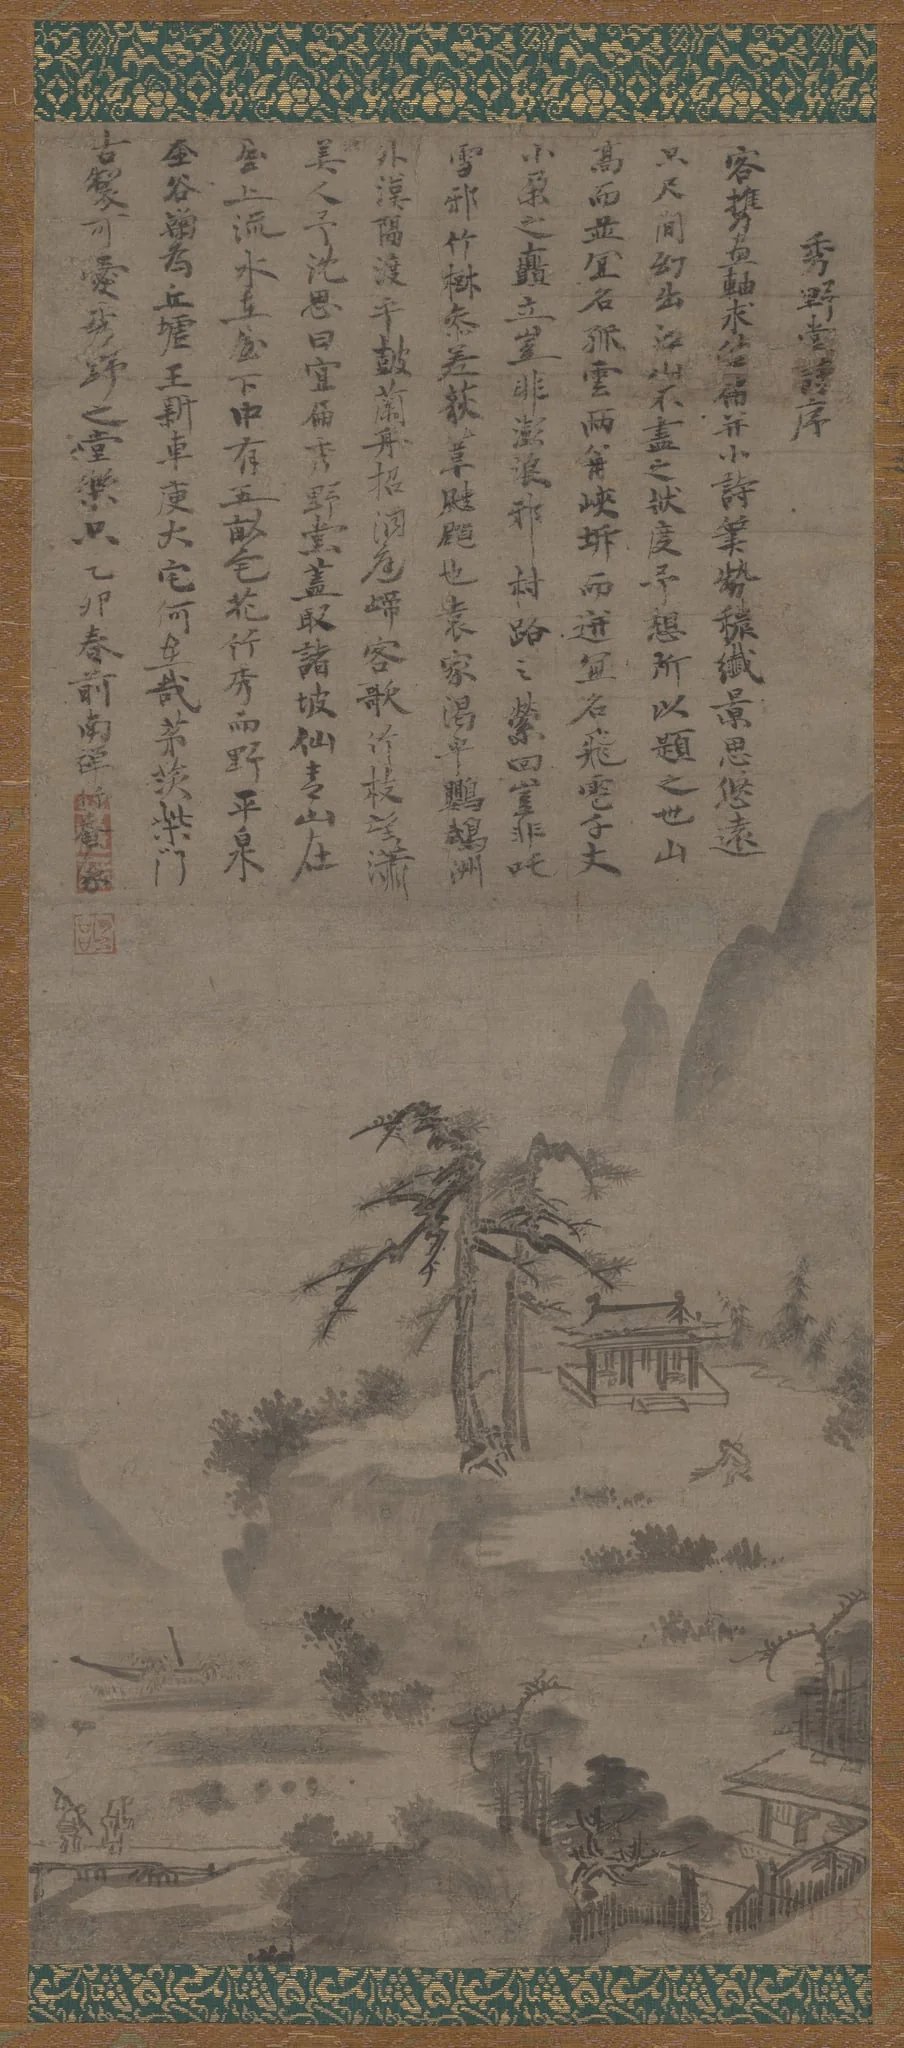 秀野堂詩序
客携畫軸求公扁并小詩筆勢穠纖景思悠遠
只尺間幻出江山不盡之狀度予想所以題之也山
高而並宜名孤雲兩角峽坼而迸宜名飛電千丈
小朶之矗立豈非澎浪邪村路之縈回豈非吒
雪邪竹樹參差荻葦颭颸也袁家渴乎鸚鵡洲
外漢陽渡乎鼓蘭舟招洞庭啼客歌竹枝望瀟
美人予沈思曰宜扁秀野堂蓋取諸坡仙青山在
屋上流水在屋下中有五畝宅花竹秀而野平泉
金谷鞠為丘墟王新車庾大宅何在哉茅茨柴門
古製可愛秀野之堂樂只 乙卯春前南禪